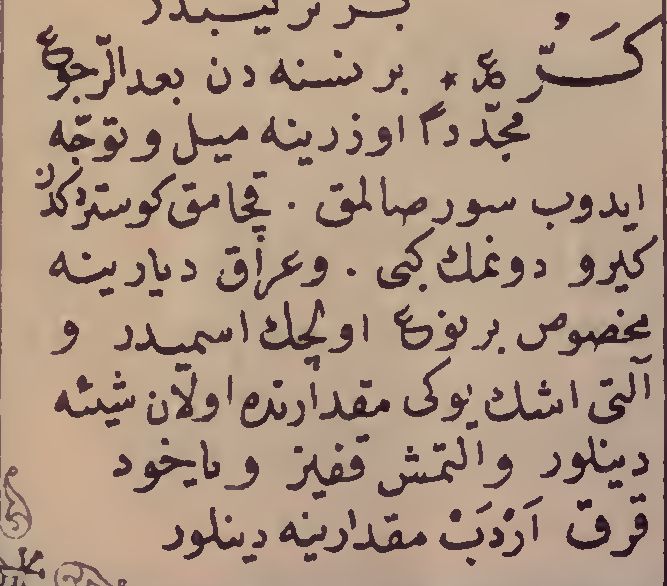 بر ترکیبدر
كَرّ ع * بر نسنه دن بعد الرجوع
مجدّدًا اوزرینه میل و توجّه
ایدوب سور صالمق . قچامق كوستردكدن
كیرو دونمك كبی . وعراق دیارینه
مخصوص بر نوع اولچك اسمیدر و
آلتی اشك یوكی مقدارنده اولان شیئه
دینلور والتمش قفیز و یاخود
قرق اَرْدَبْ مقدارینه دینلور